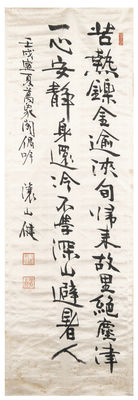 苦熱鑠金逾浹旬歸來故里絶塵津
一心安静身還冷不學深山避暑人
壬戌夏萬家閣偶吟
山健